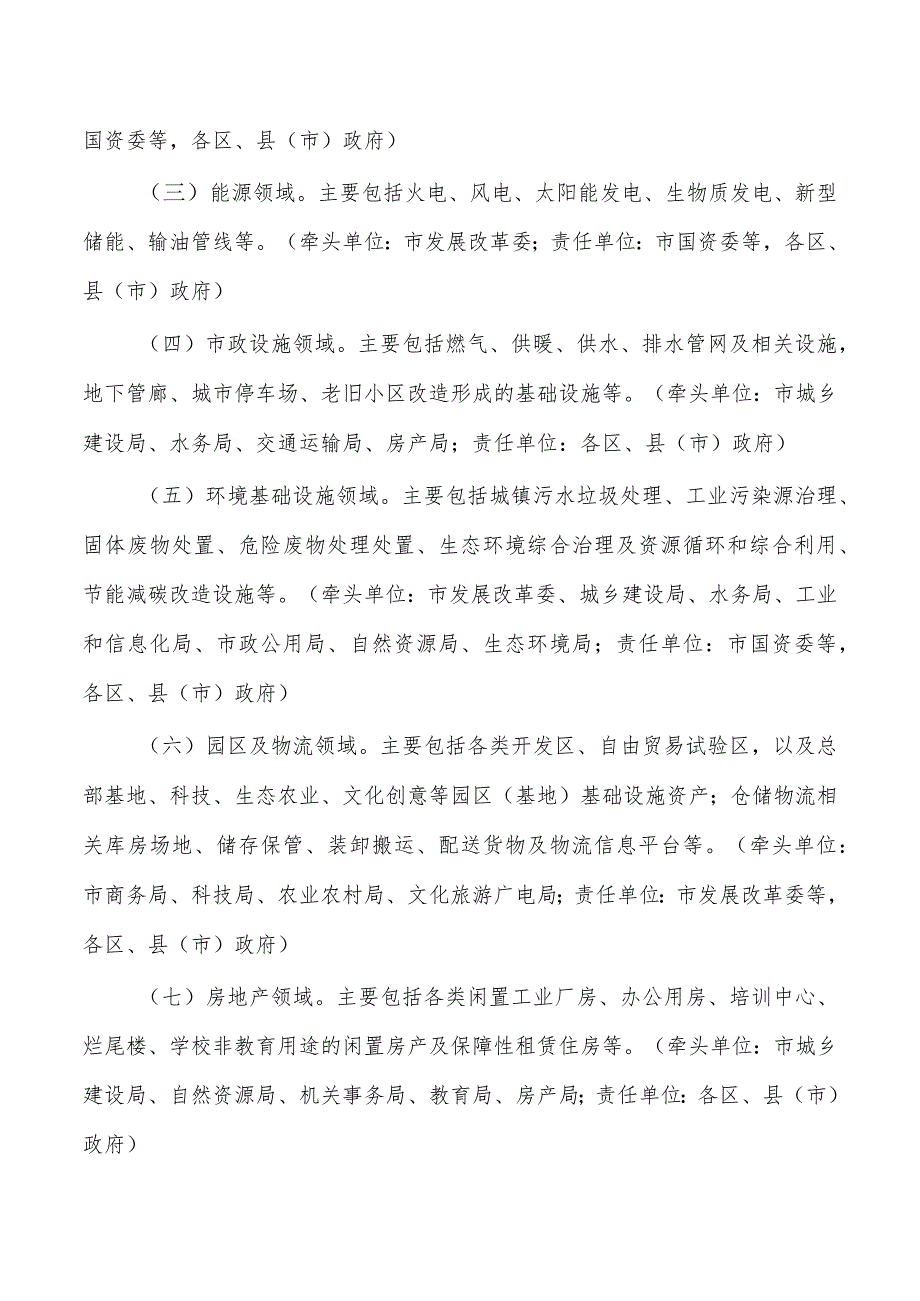 国资委等，各区、县（市）政府）
（三）能源领域。主要包括火电、风电、太阳能发电、生物质发电、新型
储能、输油管线等。（牵头单位：市发展改革委；责任单位：市国资委等，各区、
县（市）政府）
（四）市政设施领域。主要包括燃气、供暖、供水、排水管网及相关设施，
地下管廊、城市停车场、老旧小区改造形成的基础设施等。（牵头单位：市城乡
建设局、水务局、交通运输局、房产局；责任单位：各区、县（市）政府）
（五）环境基础设施领域。主要包括城镇污水垃圾处理、工业污染源治理、
固体废物处置、危险废物处理处置、生态环境综合治理及资源循环和综合利用、
节能减碳改造设施等。（牵头单位：市发展改革委、城乡建设局、水务局、工业
和信息化局、市政公用局、自然资源局、生态环境局；责任单位：市国资委等，
各区、县（市）政府）
（六）园区及物流领域。主要包括各类开发区、自由贸易试验区，以及总
部基地、科技、生态农业、文化创意等园区（基地）基础设施资产；仓储物流相
关库房场地、储存保管、装卸搬运、配送货物及物流信息平台等。（牵头单位：
市商务局、科技局、农业农村局、文化旅游广电局；责任单位：市发展改革委等，
各区、县（市）政府）
（七）房地产领域。主要包括各类闲置工业厂房、办公用房、培训中心、
烂尾楼、学校非教育用途的闲置房产及保障性租赁住房等。（牵头单位：市城乡
建设局、自然资源局、机关事务局、教育局、房产局；责任单位：各区、县（市）
政府）